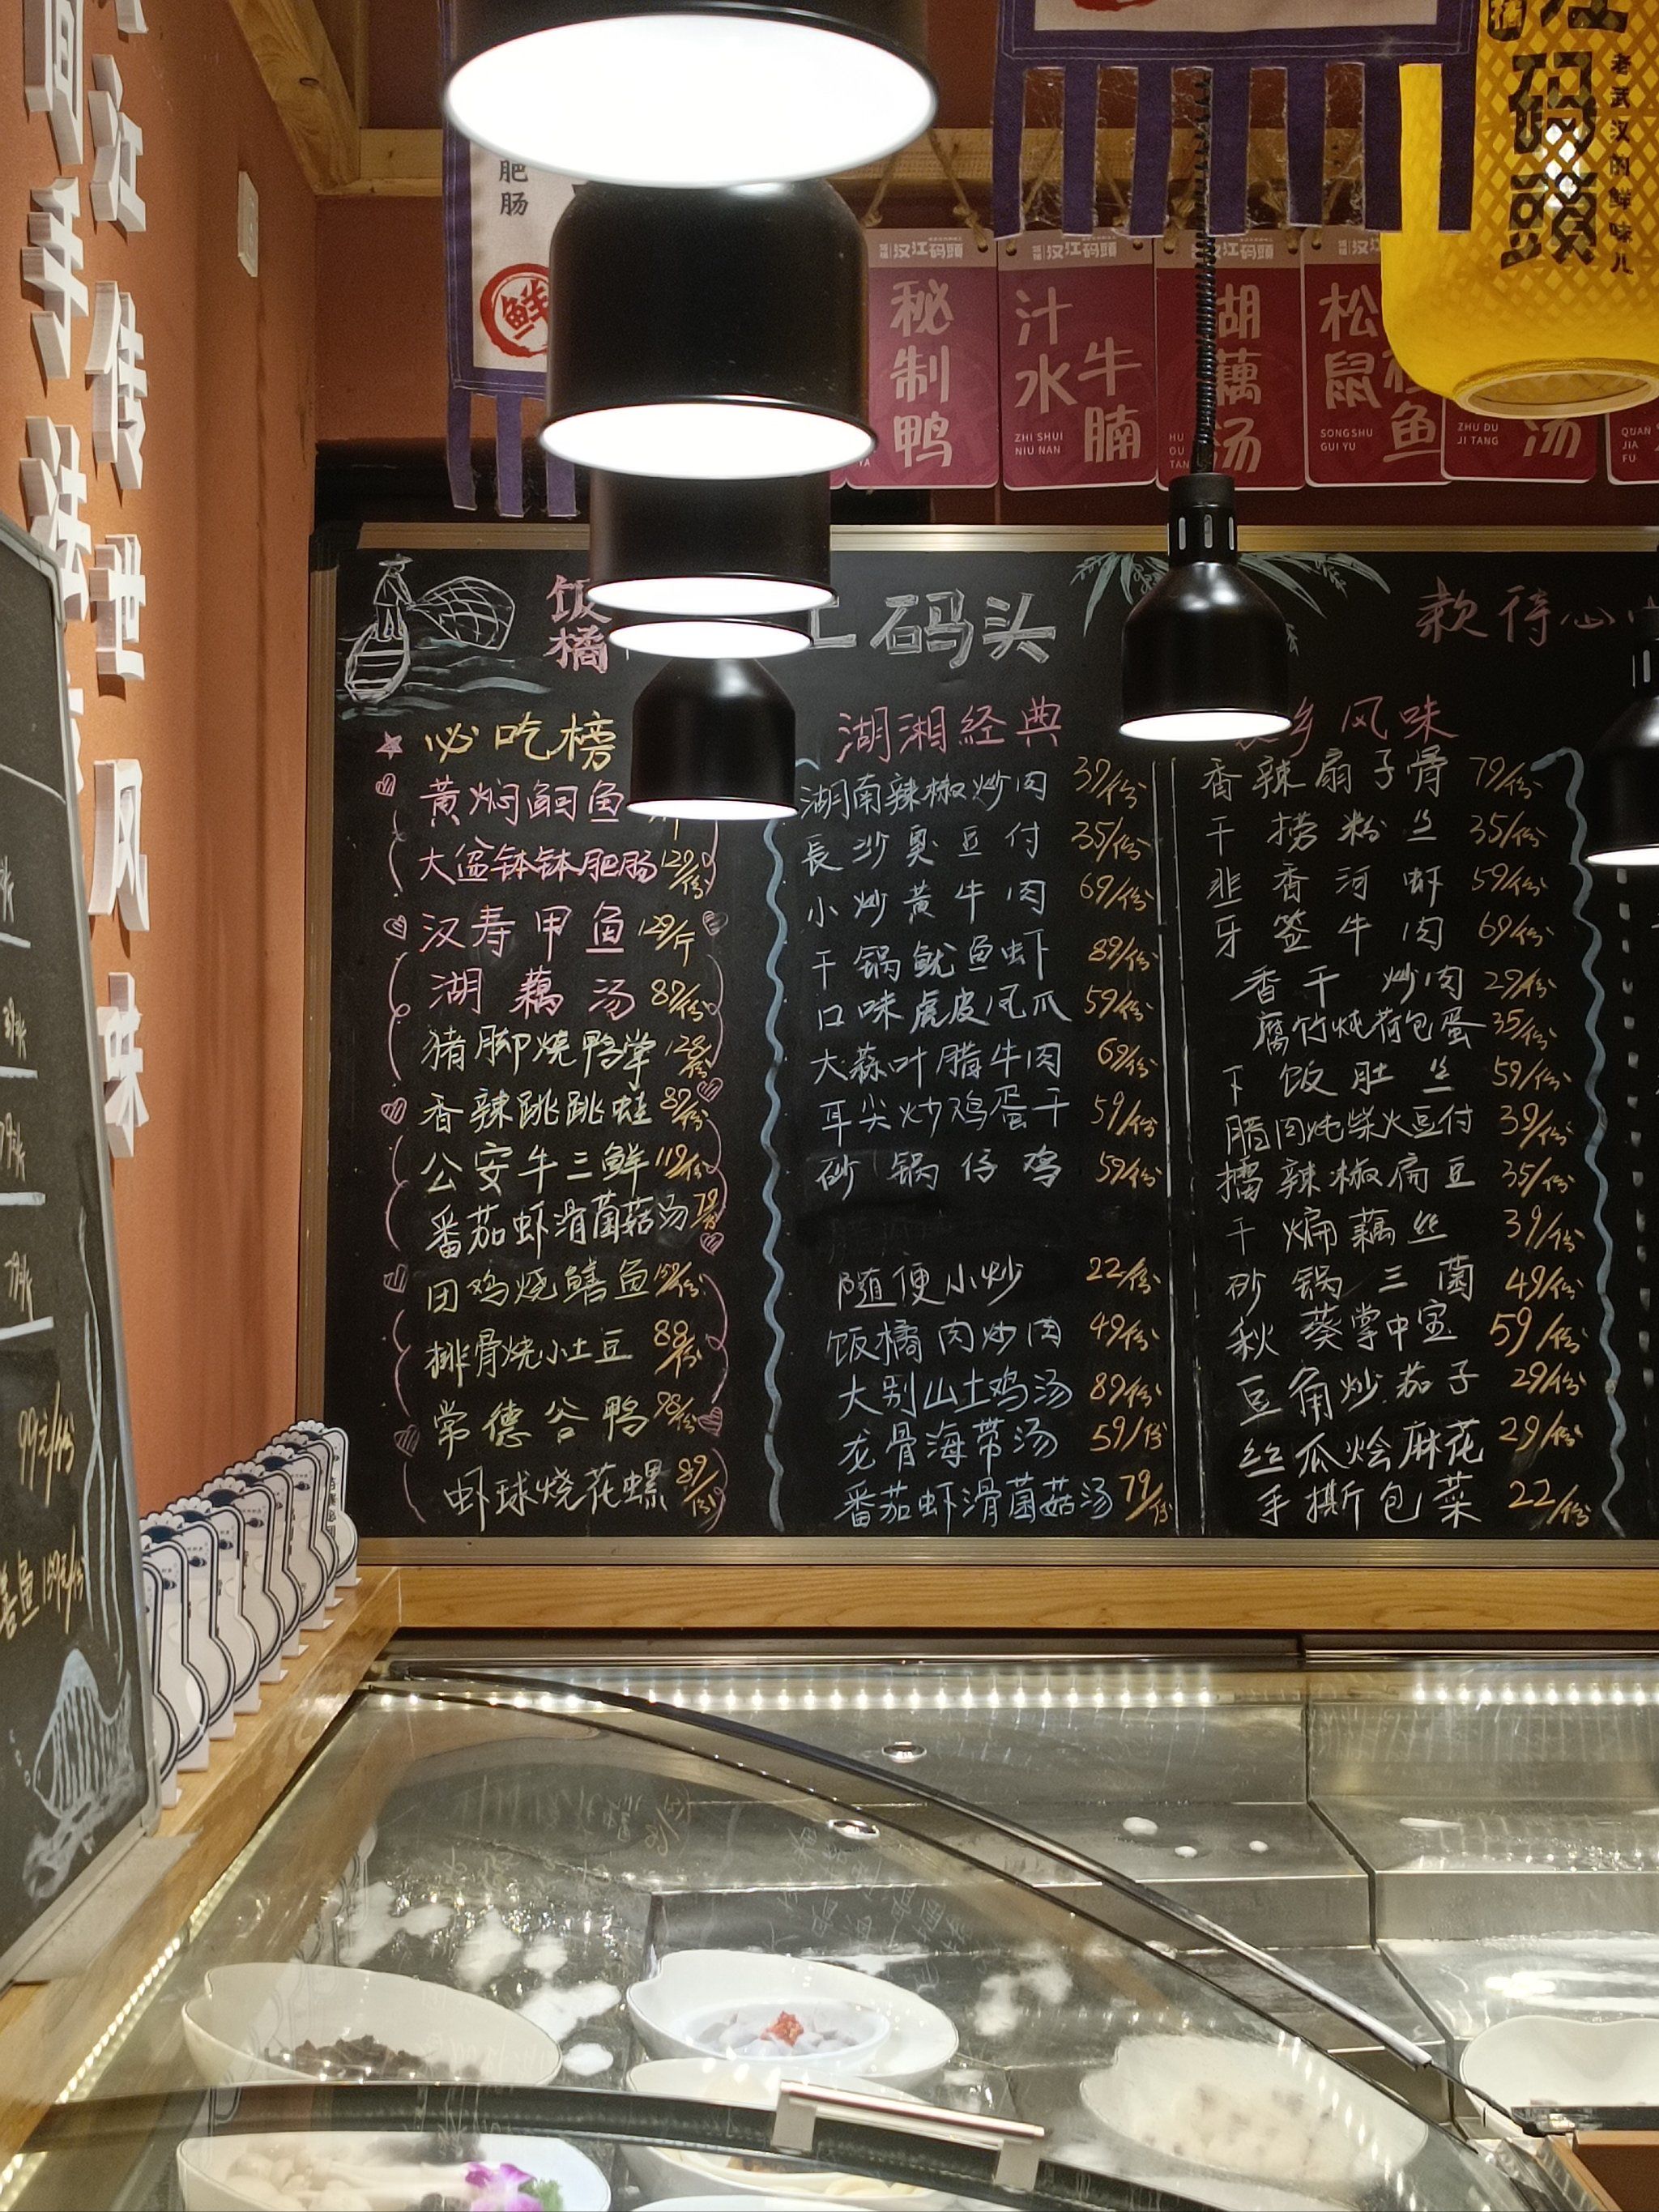 江传世风味
间手法
肥肠
鲜
汉江码頭
秘制鸭
汉江码頭
汁水牛腩
ZHI SHUI
NIU NAN
汉江码頭
湖藕汤
HU
OU
TAN
汉江码頭
松鼠桂鱼
SONG SHU
GUI YU
ZHU DU
JI TANG
汤
QUAN
JIA
FU
码頭
老武汉的鲜味儿
饭橘
码头
款待心
必吃榜
黄焖鮰鱼
大盆钵钵肥肠 129/份
汉寿甲鱼 129/斤
湖藕汤 89/份
猪脚烧鸭掌 128/份
香辣跳跳蛙 89/份
公安牛三鲜 119/份
番茄虾滑菌菇汤 79/份
团鸡烧鳝鱼 159/份
排骨烧小土豆 88/份
常德谷鸭 98/份
虾球烧花螺 89/份
湖湘经典
湖南辣椒炒肉 39/份
長沙臭豆付 35/份
小炒黄牛肉 69/份
干锅鱿鱼虾 89/份
口味虎皮凤爪 59/份
大蒜叶腊牛肉 69/份
耳尖炒鸡蛋干 59/份
砂锅仔鸡 59/份
随便小炒 22/份
饭橘肉炒肉 49/份
大别山土鸡汤 89/份
龙骨海带汤 59/份
番茄虾滑菌菇汤 79/份
乡风味
香辣扇子骨 79/份
干捞粉丝 35/份
韭香河虾 59/份
牙签牛肉 69/份
香干炒肉 29/份
腐竹炖荷包蛋 35/份
下饭肚丝 59/份
腊肉炖柴火豆付 39/份
擂辣椒扁豆 35/份
干煸藕丝 39/份
砂锅三菌 49/份
秋葵掌中宝 59/份
豆角炒茄子 29/份
丝瓜烩麻花 29/份
手撕包菜 22/份
99元/份
鳝鱼 159元/份